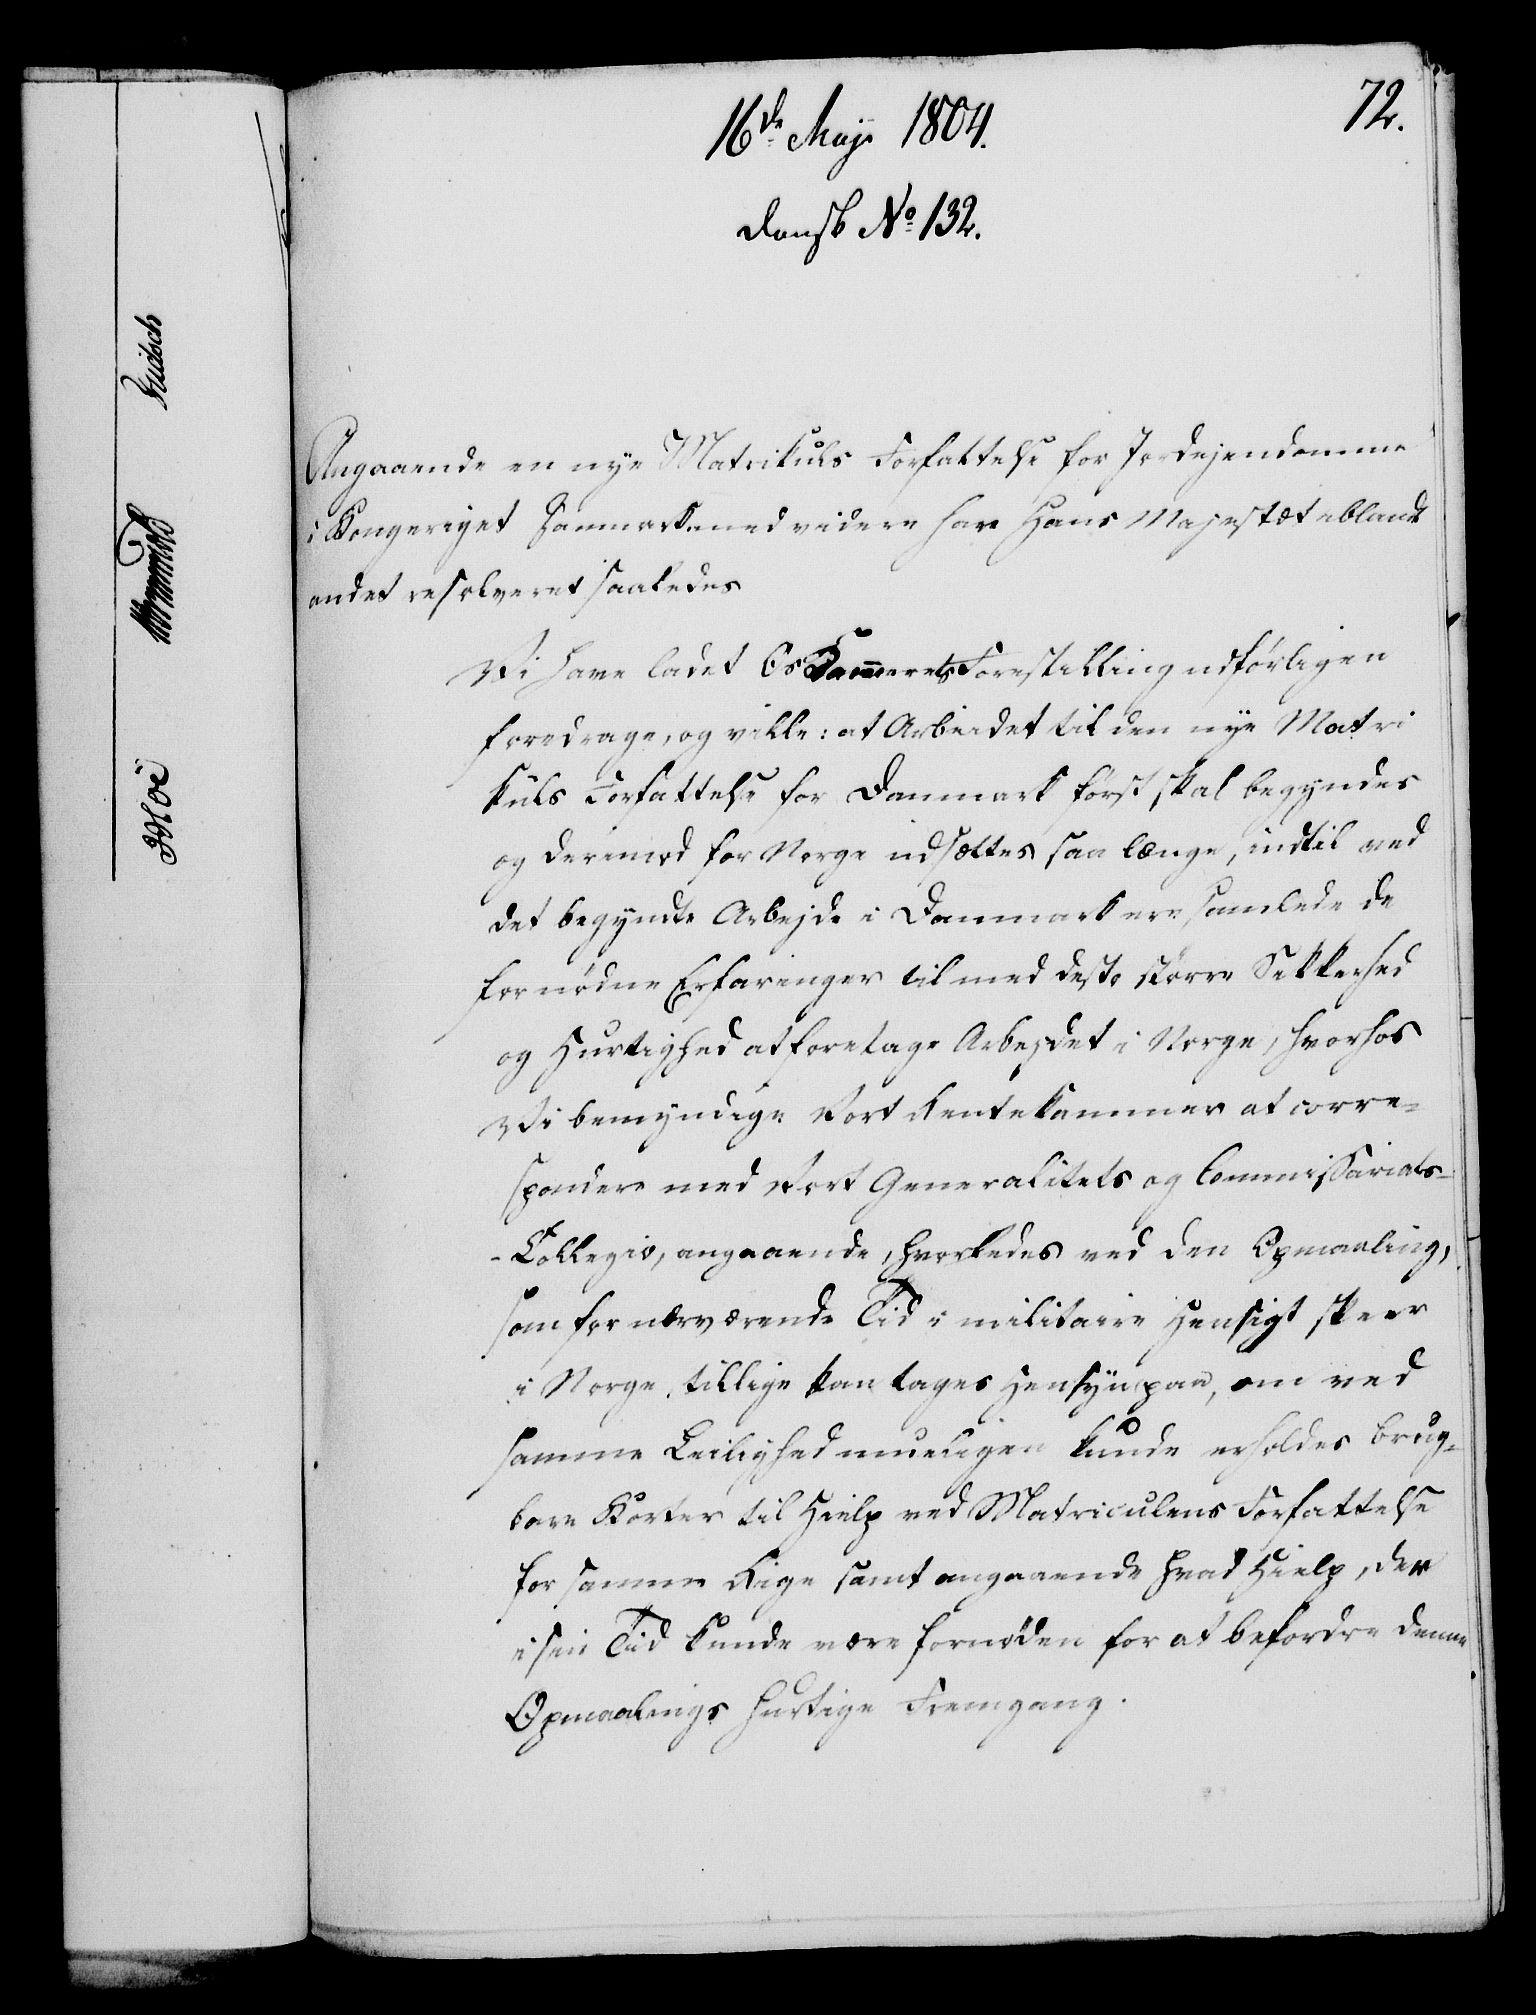 72.
16de Maji 1804.
Dansk No 132.
Angaaende en nye Matrikuls Forfattelse for Jordejendomme
i Kongeriget Danmark med videre har Hans Majestæt iblandt
andet resolveret saaledes
Vi have ladet Os Kammerets Forestilling udførligen
foredrage, og ville: at Arbeidet til den nye Matri
kuls Forfattelse for Danmark først skal begyndes
og derimod for Norge udsættes saa længe, indtil ved
det begyndte Arbejde i Danmark ere samlede de
fornødne Erfaringer til med desto større Sikkerhed
og Hurtighed at foretage Arbejdet i Norge, hvorhos
Vi bemyndige Vort Rentekammer at corre=
spondere med Vort Generalitets og Commissariats=
-Collegio, angaaende, hvorledes ved den Opmaaling,
som for nærværende Tid i militaire Hensigt skeer
i Norge, tillige kan tages Hensyn paa, om ved
samme Leilighed mueligen kunde erholdes brug=
bare Korter til Hielp ved Matriculens Forfattelse
for samme Rige samt angaaende hvad Hielp, der
i sin Tid kunde være fornøden for at befordre denne
Opmaalings hurtige Fremgang.